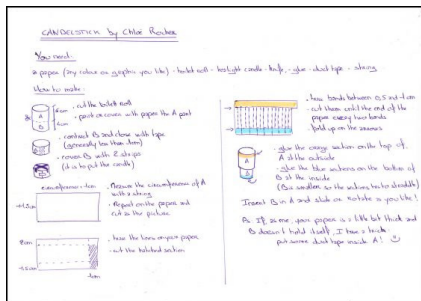 CANDELSTICK by Chloé
You need:
paper (any colour or graphic you like) - toilet roll - tealight candle - knife - glue - duct tape - string
How to make:
A
B
. cut the toilet roll
. paint or cover with paper the A part
. contract B and close with tape
(generally less than 1cm)
. cover B with 2 strips
(it is to put the candle)
circumference + 1cm
. Measure the circumference of A
with a string
. Report on the paper and
cut as the picture
. trace the lines on your paper
. cut the hatched section
1cm
. trace bands between 0,5 and 1cm
. cut them until the end of the
paper every two bands
. fold up on the
A
B
. glue the orange section on the top of
A at the outside
. glue the blue section on the bottom of
B at the inside
(B is smaller so the section has to straddle)
Insert B in A and slide or rotate as you like!
Ps: If, as me, your paper is a little bit thick and
B doesn't hold itself, I have a trick:
put some duct tape inside A!